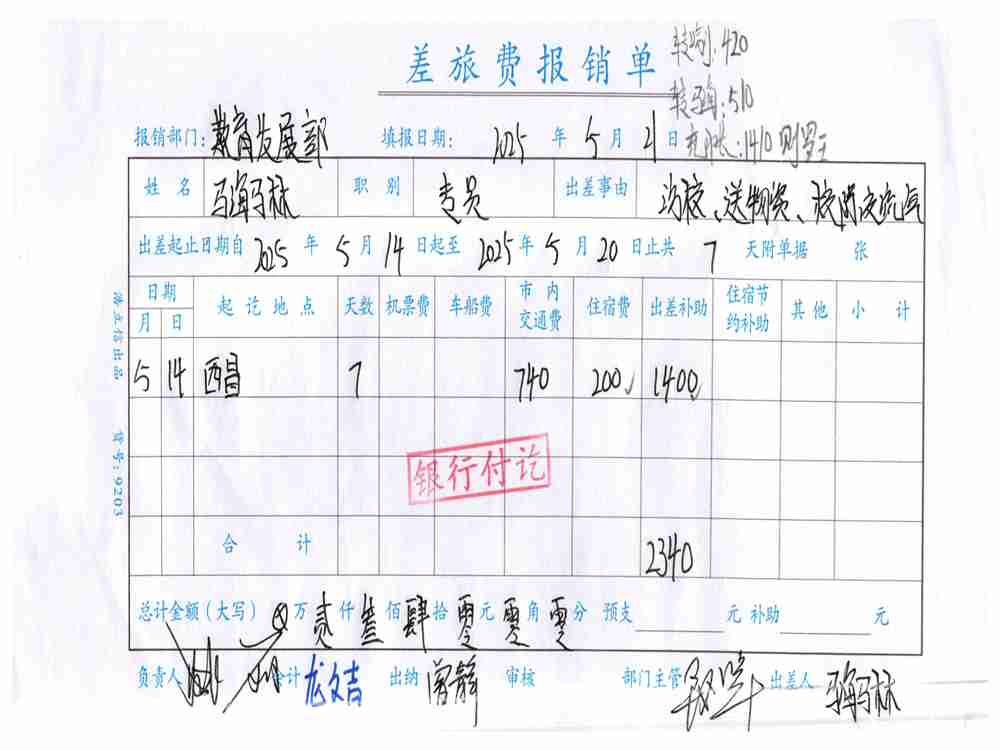 差旅费报销单
420
510
1410
报销部门：教育发展部 填报日期： 2025 年 5 月 21 日
姓名 马海马林 职别 专员 出差事由 访校、送物资、校际交流
出差起止日期自 2025 年 5 月 14 日起至 2025 年 5 月 20 日止共 7 天附单据 张
日期 起讫地点 天数 机票费 车船费 市内交通费 住宿费 出差补助 住宿节约补助 其他 小计
月 日
5 14 西昌 7 740 200 1400
银行付讫
合计 2340
总计金额（大写） 万 贰 仟 叁 佰 肆 拾 零 元 零 角 零 分 预支 元 补助 元
负责人 会计 龙文吉 出纳 曾静 审核 部门主管 出差人 马海马林
货号：9203